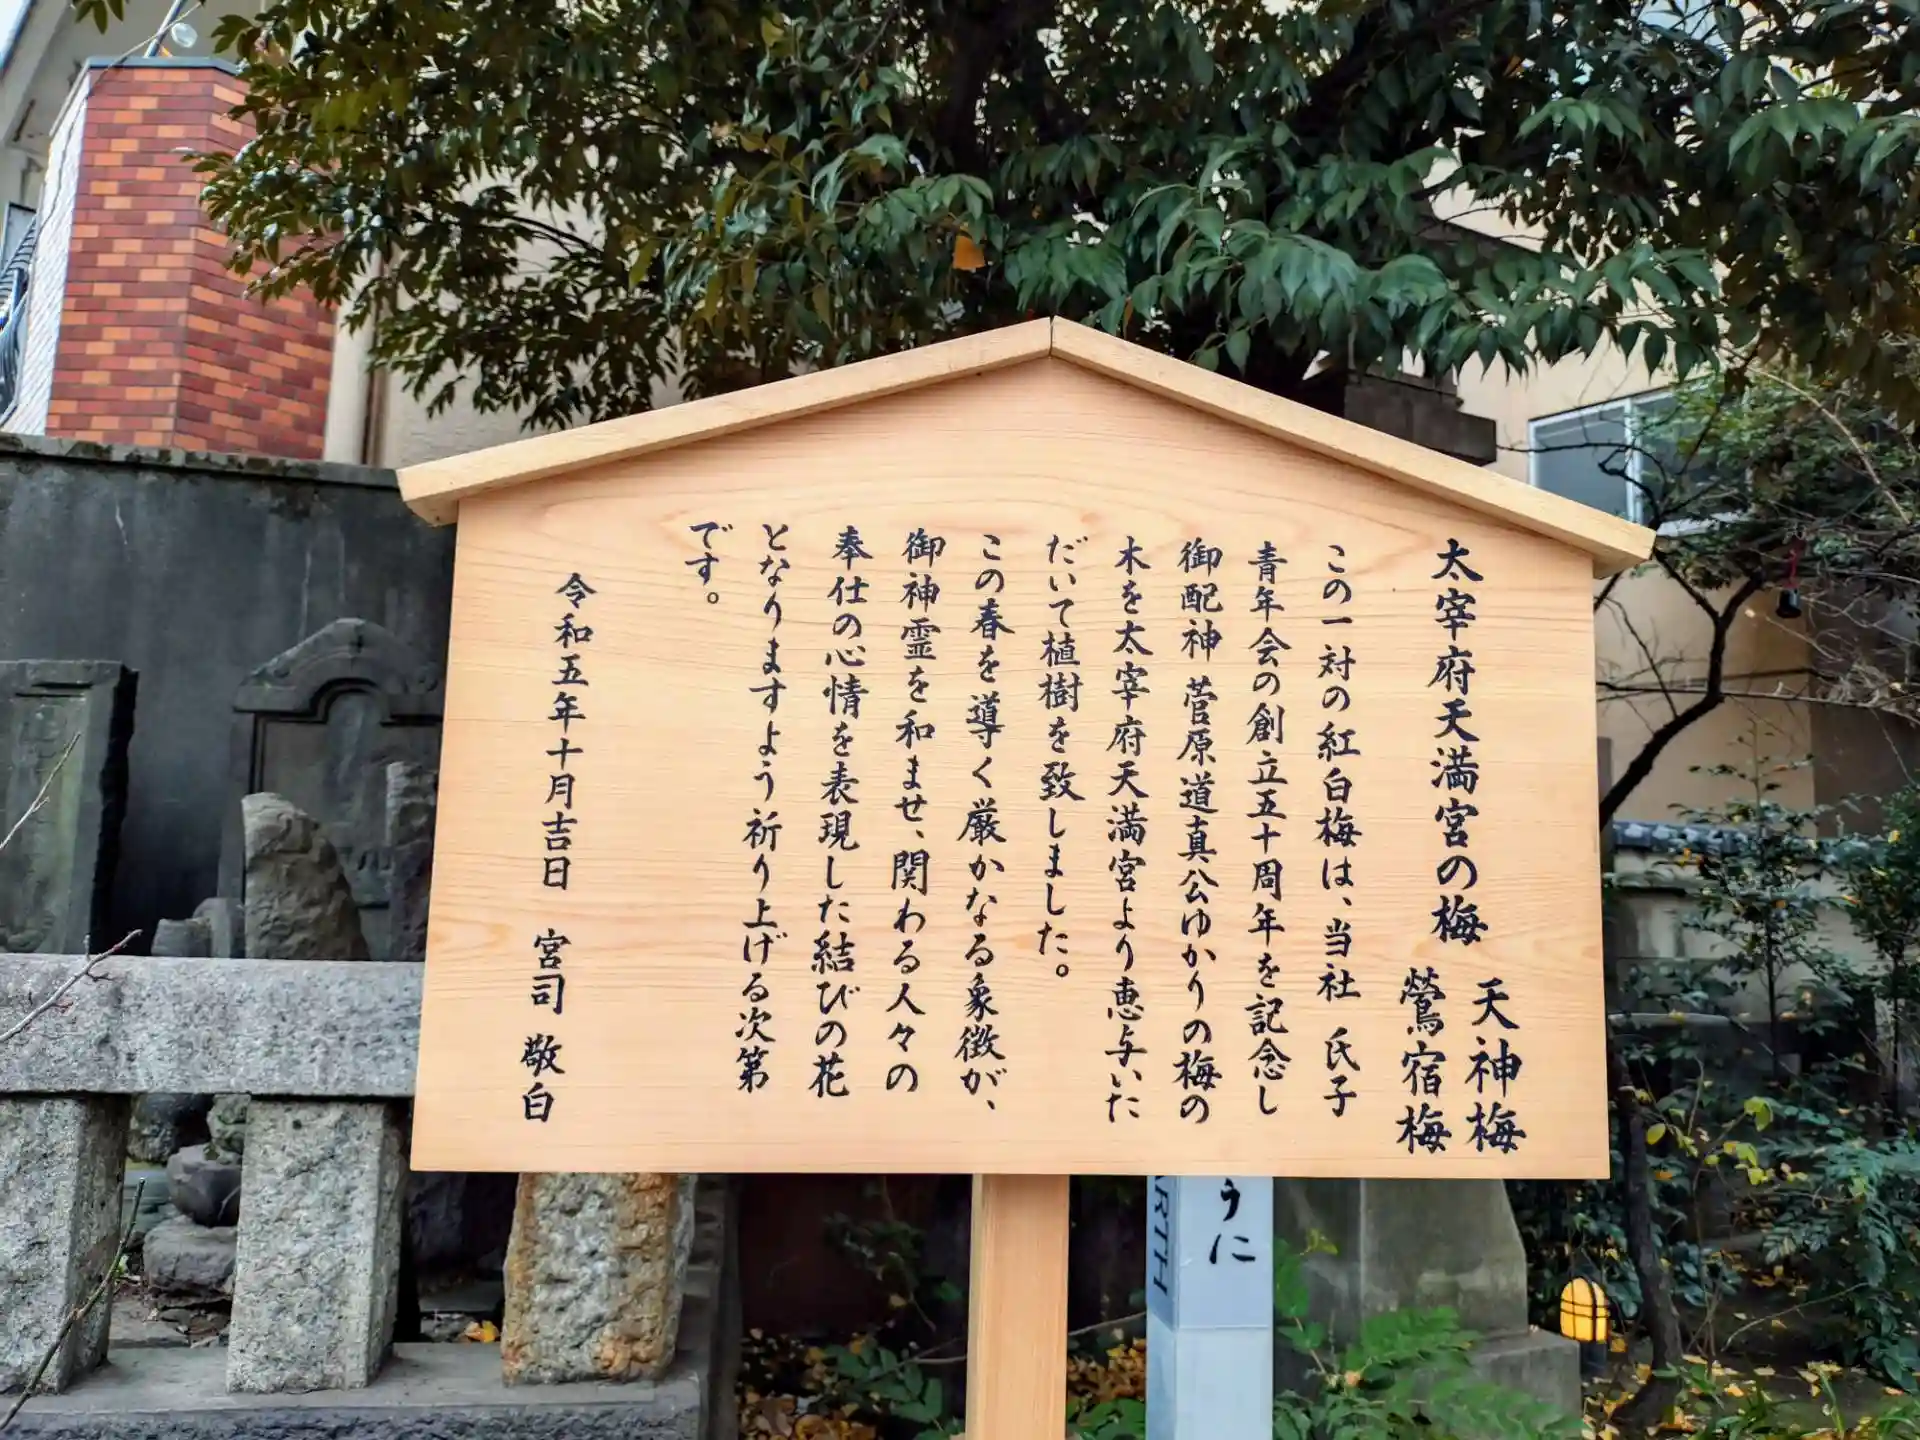 太宰府天満宮の梅 天神梅
鶯宿梅
この一対の紅白梅は、当社 氏子
青年会の創立五十周年を記念し
御配神 菅原道真公ゆかりの梅の
木を太宰府天満宮より恵与いた
だいて植樹を致しました。
この春を導く厳かなる象徴が、
御神霊を和ませ、関わる人々の
奉仕の心情を表現した結びの花
となりますよう祈り上げる次第
です。
令和五年十月吉日 宮司 敬白
うに
ARTH